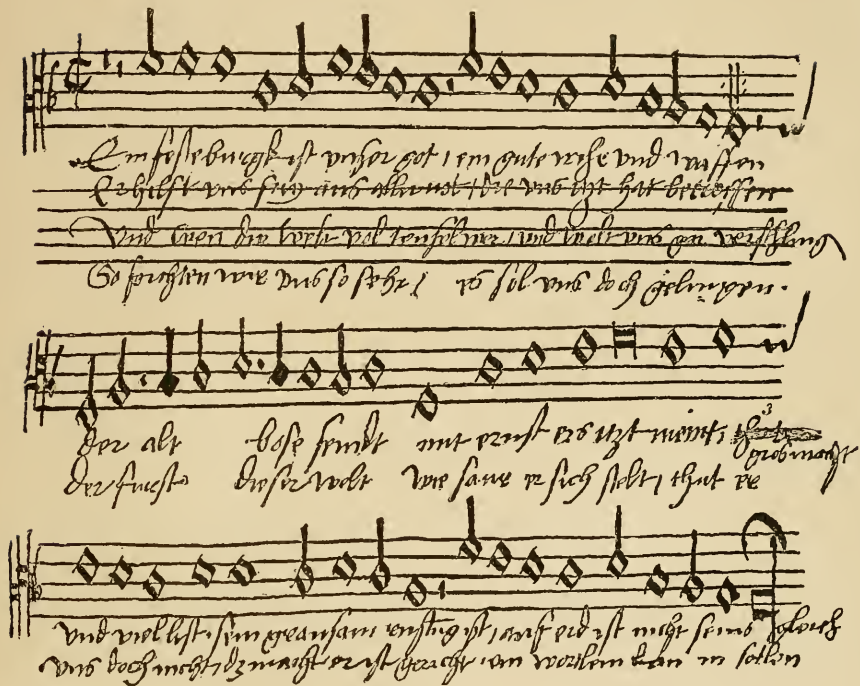 Ein festeburgk ist unser got / ein gute wehr und waffen
Er hilft uns frey aus aller not / die uns itzt hat betroffen
Und wen die welt vol teufel wer / und wolt uns gar verschling
So forchten wir uns so sehr / es sol uns doch gelingen.
der alt bose feindt mit ernst ers itzt meint /
grobmacht
der furst dieser welt wie saur er sich stelt / thut er
und viel list sein grausam rustung ist / auf erd ist nicht seins gleich
uns doch nicht / dz macht er ist gericht / ein wortlein kan in fellen